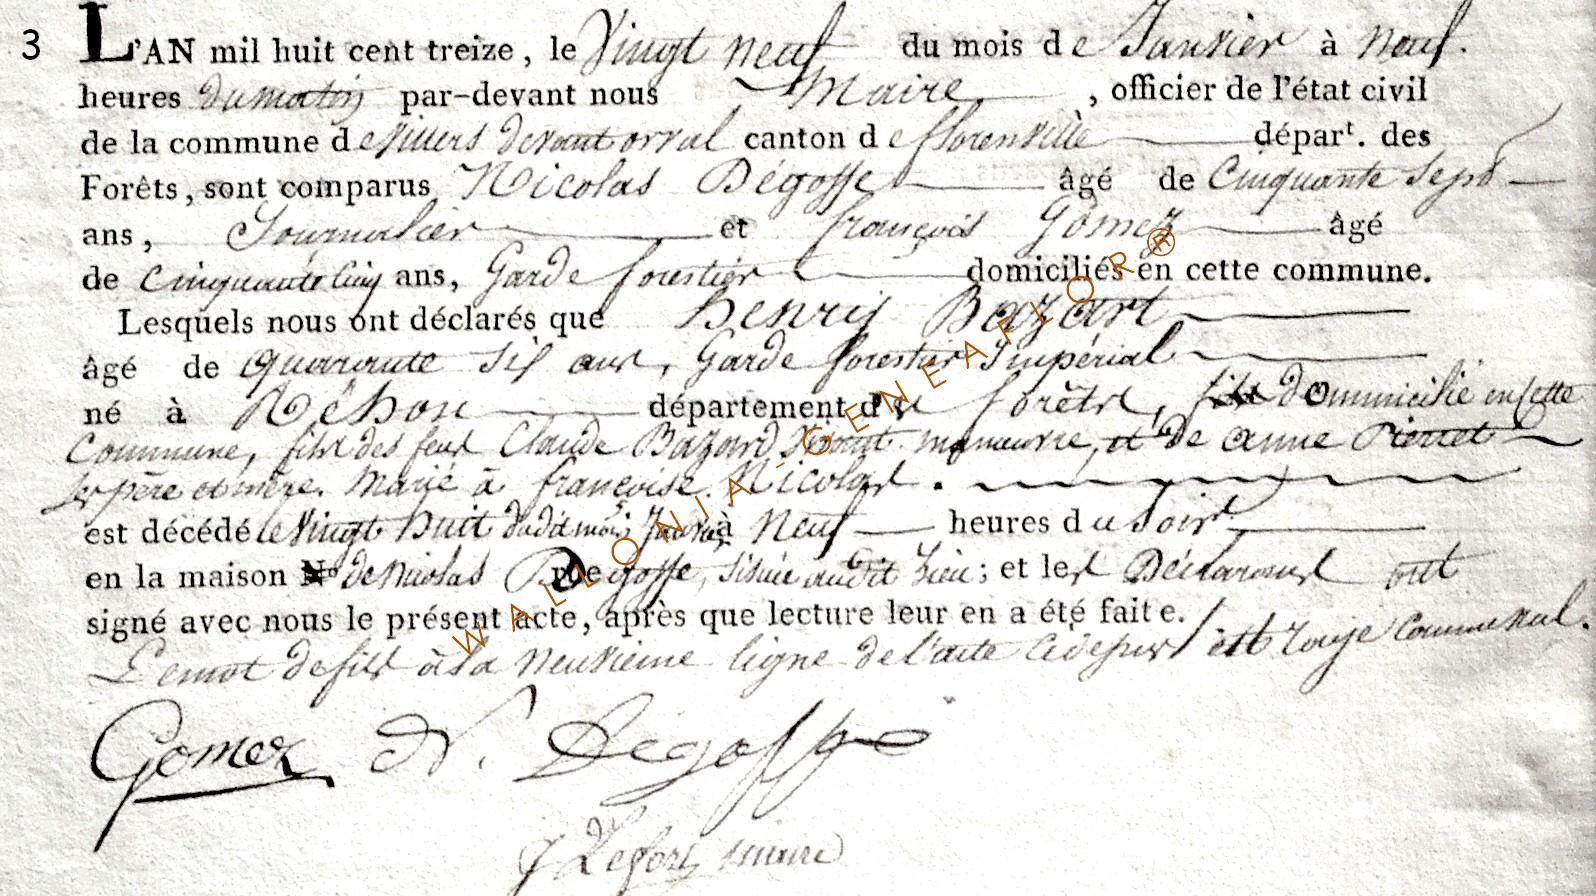 3
L'AN mil huit cent treize, le Vingt neuf du mois de Janvier à neuf.
heures du matin par-devant nous Maire, officier de l'état civil
de la commune de villers devant orval canton de florenville dépar^t. des
Forêts, sont comparus Nicolas Dégoffe âgé de Cinquante Sept
ans, Journalier et françois Gomez âgé
de Cinquante Cinq ans, Garde forestier domiciliés en cette commune.
Lesquels nous ont déclarés que henry Bazart
âgé de quarante six ans, Garde forestier Impérial
né à Réhon département des forêts, fils Dommicilié en Cette
Commune, fils des feus Claude Bazard vivant manœuvre, et de anne Pierret
ses père et mère. Marié à françoise Nicolas.
est décédé le Vingt huit dudit mois Janvier à Neuf heures du Soir
en la maison N° de Nicolas Degoffe, Sisise audit Lieu; et les Déclarans ont
signé avec nous le présent acte, après que lecture leur en a été faite.
Le mot de fils à la neuvième ligne de l'acte Cidessus est rayé
Gomez N. Dégoffe
J Lefort maire
WALLONIA-GENEAFLOR®